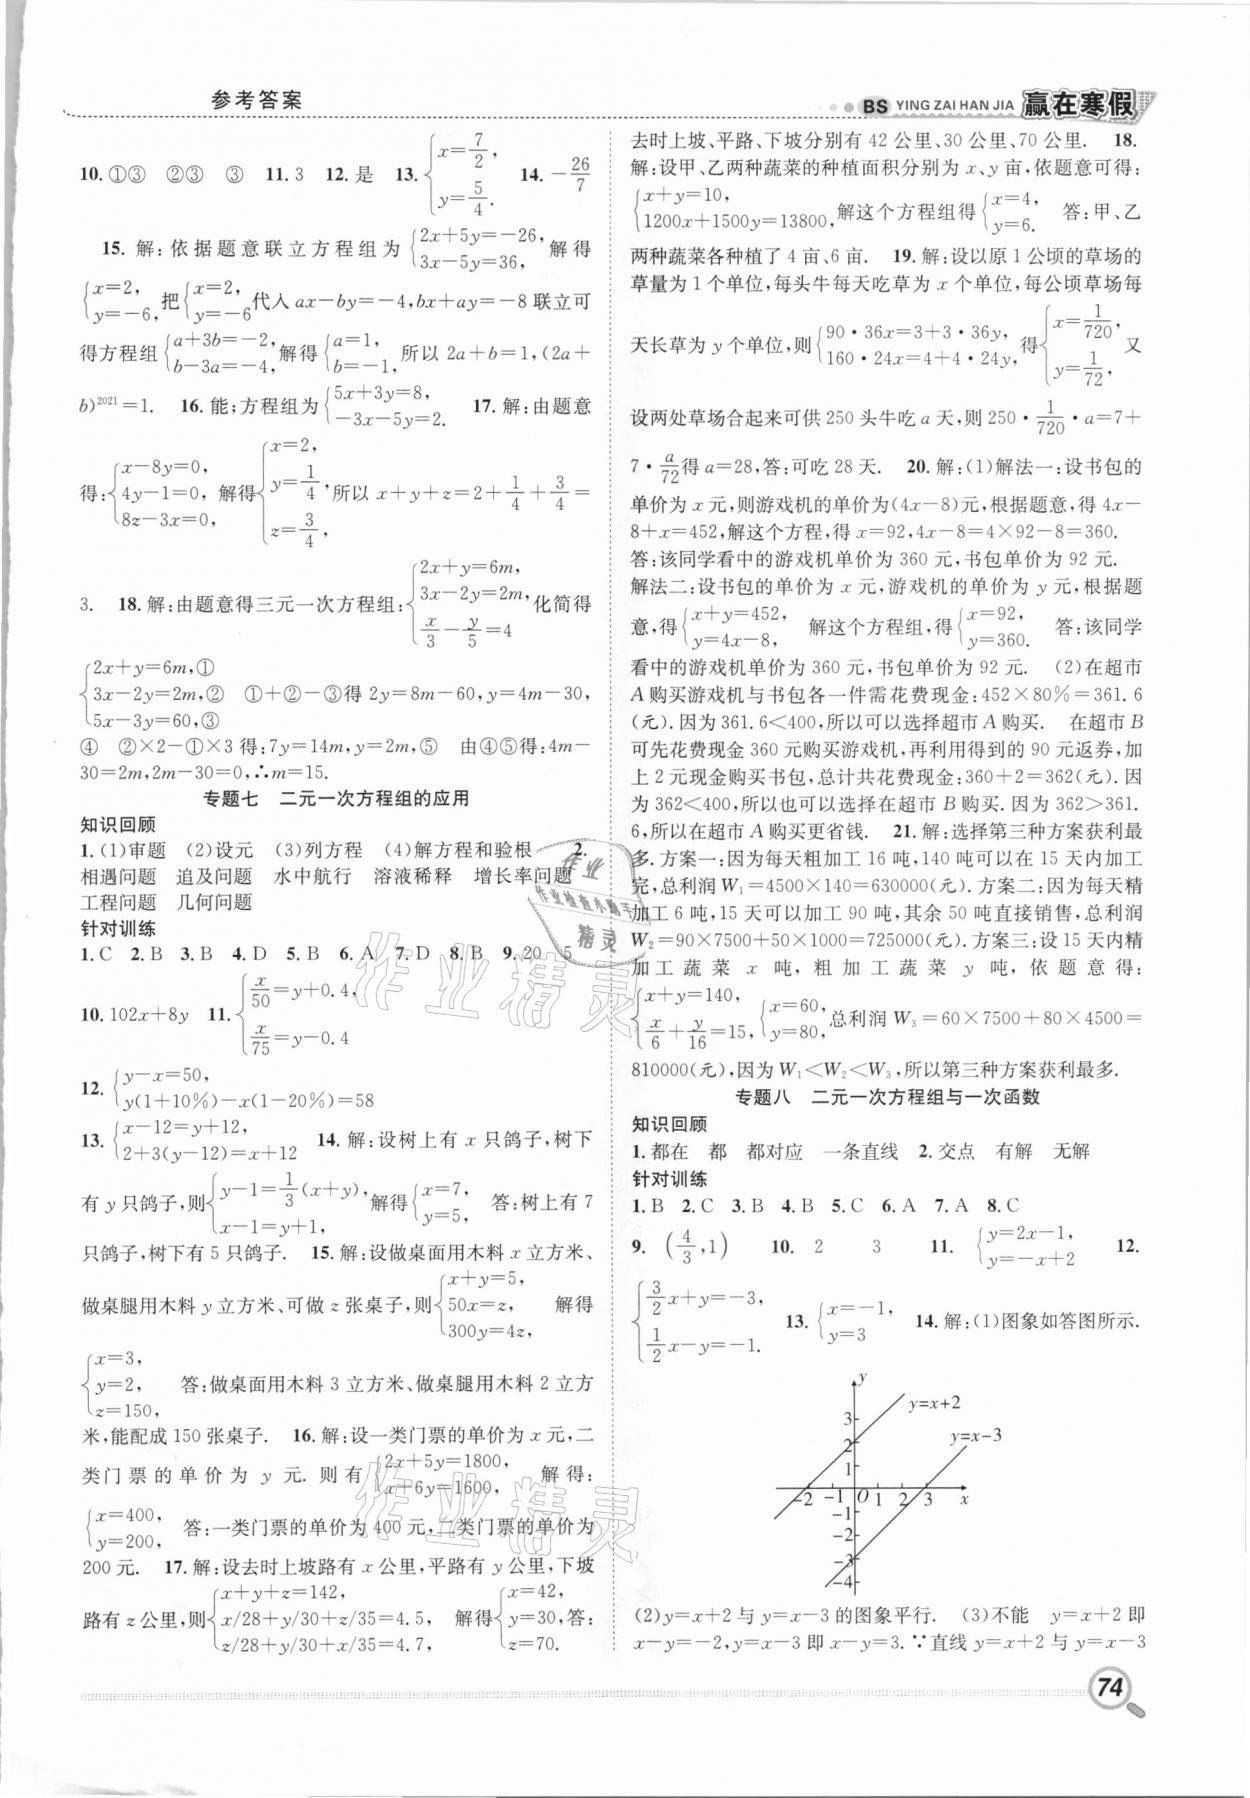 参考答案
BS YING ZAI HAN JIA 赢在寒假
10. ①③ ②③ ③ 11. 3 12. 是 13. {x=7/2, y=5/4. 14. -26/7
15. 解:依据题意联立方程组为{2x+5y=-26, 3x-5y=36, 解得
{x=2, y=-6, 把{x=2, y=-6代入 ax-by=-4,bx+ay=-8 联立可
得方程组{a+3b=-2, b-3a=-4, 解得{a=1, b=-1, 所以 2a+b=1,(2a+
b)²⁰²¹=1. 16. 能;方程组为{5x+3y=8, -3x-5y=2. 17. 解:由题意
得:{x-8y=0, 4y-1=0, 8z-3x=0, 解得{x=2, y=1/4, z=3/4, 所以 x+y+z=2+1/4+3/4=
3. 18. 解:由题意得三元一次方程组:{2x+y=6m, 3x-2y=2m, x/3-y/5=4 化简得
{2x+y=6m,① 3x-2y=2m,② 5x-3y=60,③ ①+②-③得 2y=8m-60,y=4m-30,
④ ②×2-①×3 得:7y=14m,y=2m,⑤ 由④⑤得:4m-
30=2m,2m-30=0,∴m=15.
专题七 二元一次方程组的应用
知识回顾
1. (1)审题 (2)设元 (3)列方程 (4)解方程和验根 2.
相遇问题 追及问题 水中航行 溶液稀释 增长率问题
工程问题 几何问题
针对训练
1. C 2. B 3. B 4. D 5. B 6. A 7. D 8. B 9. 20 5
10. 102x+8y 11. {x/50=y+0.4, x/75=y-0.4
12. {y-x=50, y(1+10%)-x(1-20%)=58
13. {x-12=y+12, 2+3(y-12)=x+12 14. 解:设树上有 x 只鸽子,树下
有 y 只鸽子,则{y-1=1/3(x+y), x-1=y+1, 解得{x=7, y=5, 答:树上有 7
只鸽子,树下有 5 只鸽子. 15. 解:设做桌面用木料 x 立方米、
做桌腿用木料 y 立方米、可做 z 张桌子,则{x+y=5, 50x=z, 300y=4z, 解得
{x=3, y=2, z=150, 答:做桌面用木料 3 立方米、做桌腿用木料 2 立方
米,能配成 150 张桌子. 16. 解:设一类门票的单价为 x 元,二
类门票的单价为 y 元. 则有{2x+5y=1800, x+6y=1600, 解得:
{x=400, y=200, 答:一类门票的单价为 400 元,二类门票的单价为
200 元. 17. 解:设去时上坡路有 x 公里,平路有 y 公里,下坡
路有 z 公里,则{x+y+z=142, x/28+y/30+z/35=4.5, z/28+y/30+x/35=4.7, 解得{x=42, y=30, z=70. 答:
去时上坡、平路、下坡分别有 42 公里、30 公里、70 公里. 18.
解:设甲、乙两种蔬菜的种植面积分别为 x、y 亩,依题意可得:
{x+y=10, 1200x+1500y=13800, 解这个方程组得{x=4, y=6. 答:甲、乙
两种蔬菜各种植了 4 亩、6 亩. 19. 解:设以原 1 公顷的草场的
草量为 1 个单位,每头牛每天吃草为 x 个单位,每公顷草场每
天长草为 y 个单位,则{90·36x=3+3·36y, 160·24x=4+4·24y, 得{x=1/720, y=1/72, 又
设两处草场合起来可供 250 头牛吃 a 天,则 250·1/720·a=7+
7·a/72得 a=28,答:可吃 28 天. 20. 解:(1)解法一:设书包的
单价为 x 元,则游戏机的单价为(4x-8)元,根据题意,得 4x-
8+x=452,解这个方程,得 x=92,4x-8=4×92-8=360.
答:该同学看中的游戏机单价为 360 元,书包单价为 92 元.
解法二:设书包的单价为 x 元,游戏机的单价为 y 元,根据题
意,得{x+y=452, y=4x-8, 解这个方程组,得{x=92, y=360. 答:该同学
看中的游戏机单价为 360 元,书包单价为 92 元. (2)在超市
A 购买游戏机与书包各一件需花费现金:452×80%=361.6
(元). 因为 361.6<400,所以可以选择超市 A 购买. 在超市 B
可先花费现金 360 元购买游戏机,再利用得到的 90 元返券,加
上 2 元现金购买书包,总计共花费现金:360+2=362(元). 因
为 362<400,所以也可以选择在超市 B 购买. 因为 362>361.
6,所以在超市 A 购买更省钱. 21. 解:选择第三种方案获利最
多. 方案一:因为每天粗加工 16 吨,140 吨可以在 15 天内加工
完,总利润 W₁=4500×140=630000(元). 方案二:因为每天精
加工 6 吨,15 天可以加工 90 吨,其余 50 吨直接销售,总利润
W₂=90×7500+50×1000=725000(元). 方案三:设 15 天内精
加工蔬菜 x 吨,粗加工蔬菜 y 吨,依题意得:
{x+y=140, x/6+y/16=15, {x=60, y=80, 总利润 W₃=60×7500+80×4500=
810000(元),因为 W₁<W₂<W₃,所以第三种方案获利最多.
专题八 二元一次方程组与一次函数
知识回顾
1. 都在 都 都对应 一条直线 2. 交点 有解 无解
针对训练
1. B 2. C 3. B 4. B 5. C 6. A 7. A 8. C
9. (4/3,1) 10. 2 3 11. {y=2x-1, y=-x+2 12.
{3/2x+y=-3, 1/2x-y=-1. 13. {x=-1, y=3 14. 解:(1)图象如答图所示.
y
y=x+2
3
y=x-3
2
1
-2 -1 O 1 2 3 x
-1
-2
-3
-4
(2)y=x+2 与 y=x-3 的图象平行. (3)不能 y=x+2 即
x-y=-2,y=x-3 即 x-y=3. ∵直线 y=x+2 与 y=x-3
74
作业
作业检查小助手
精灵
作业精灵
作业精灵